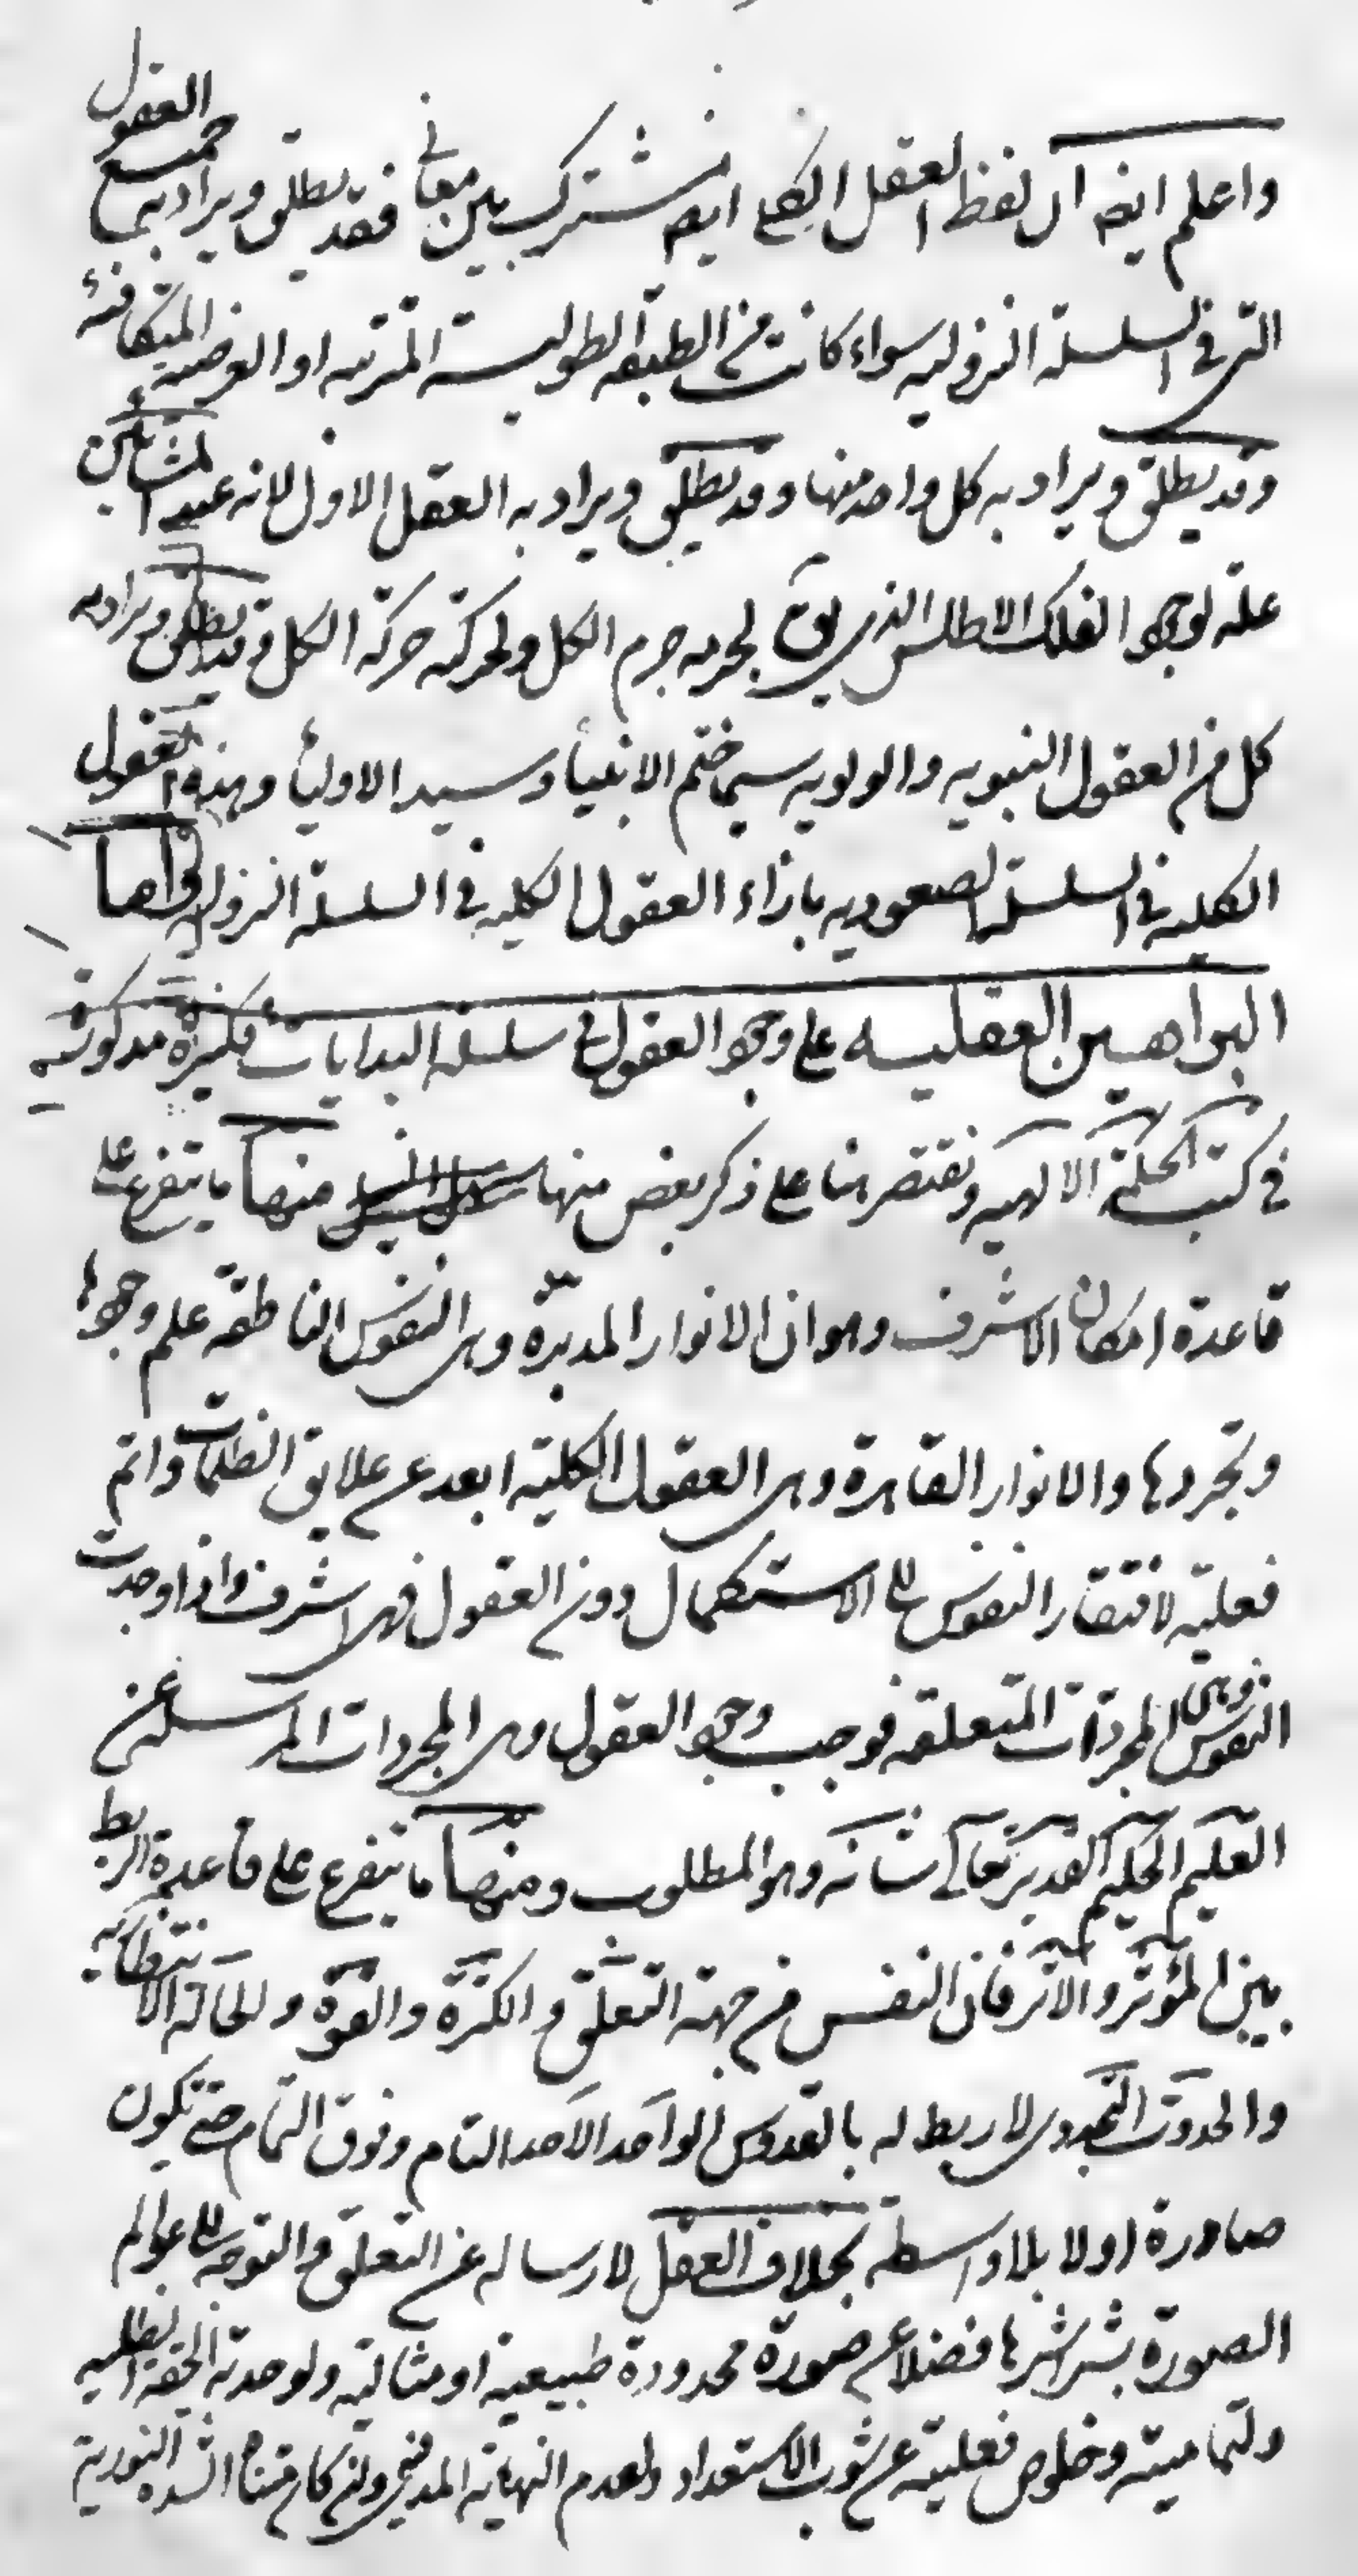 واعلم ايضا ان لفظ العقل الكلي ايضا مشترك بين معاني فقد يطلق ويراد به جميع العقول
التي في السلسلة النزوليه سواء كانت من الطبقه الطوليه المترتبه او العرضيه المتكافئه
وقد يطلق ويراد به كل واحد منها وقد يطلق ويراد به العقل الاول لانه عند المشائين
علة لوجود الفلك الاطلس الذي يق لجرمه جرم الكل ولحركته حركة الكل وقد يطلق ويراد به
كل من العقول النبويه والولويه سيما ختم الانبياء وسيد الاولياء وهذه العقول
الكليه في السلسلة الصعوديه بازاء العقول الكليه في السلسلة النزوليه اما
البراهين العقليه على وجود العقول في سلسلة البدايات فكثيرة مذكورة
في كتب الحكمة الالهيه ونقتصر هنا على ذكر بعض منها منها ما يتفرع على
قاعدة امكان الاشرف وهو ان الانوار المدبرة وهي النفوس الناطقه علم وجودها
وتجردها والانوار القاهرة وهي العقول الكلية ابعد عن علايق الظلمات واتم
فعلية لافتقار النفوس الى الاستكمال دون العقول فهي اشرف واذا وجدت
النفوس وهي المجردات المتعلقه فوجب وجود العقول وهي المجردات المرسله عن
العليم الحكيم القدير تعالى شانه وهو المطلوب ومنها ما يتفرع على قاعدة الربط
بين المؤثر والاثر فان النفس من جهة التعلق والكثرة والقوة والحالة الانتظاريه
والحدوث التجددي لا ربط له بالقدوس الواحد الاحد التام وفوق التمام حتى تكون
صادرة اولا بلا واسطه بخلاف العقل لارساله عن التعلق والتوجه الى عوالم
الصورة بشراشرها فضلا عن صورة محدودة طبيعية او مثالية ولوحدته الحقة الظليه
ولتماميته وخلوص فعليته عن شوب الاستعداد ولعدم النهاية المدتي وان كان متناه الشدة النورية